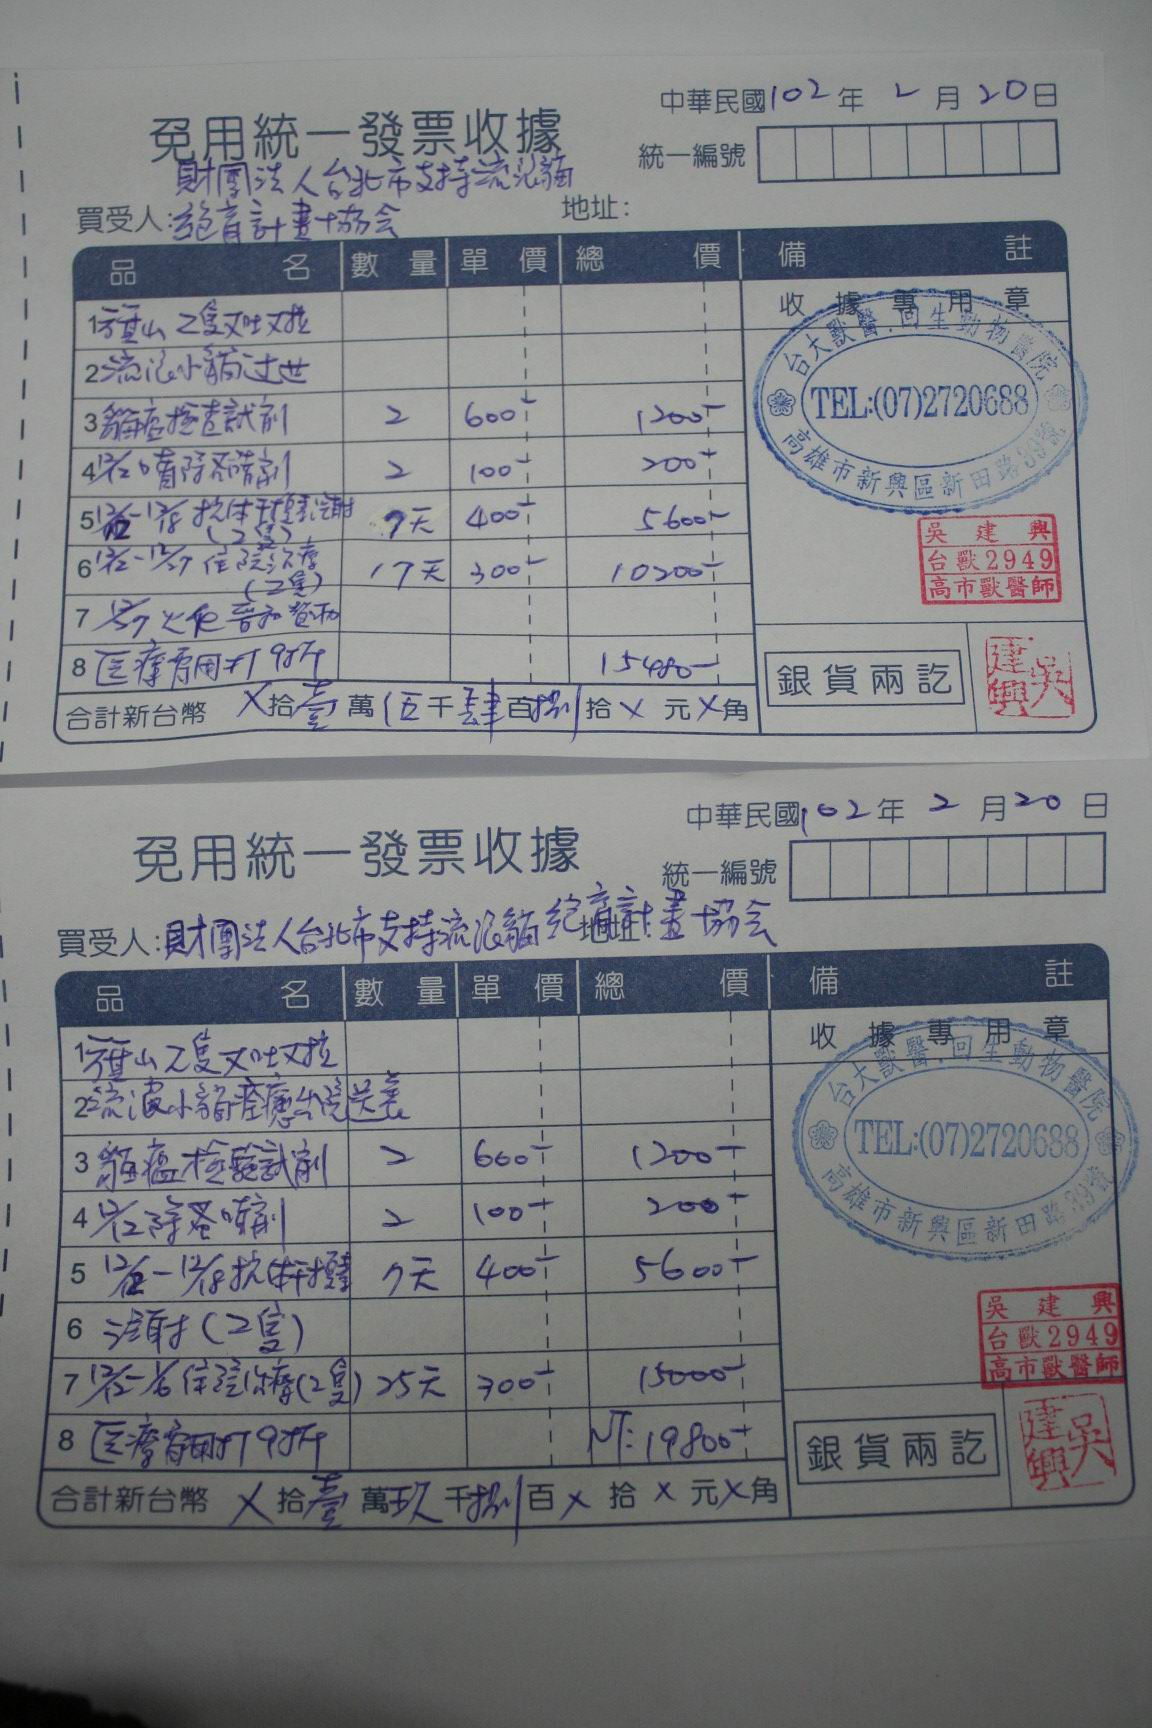 中華民國102年 2月20日
免用統一發票收據
統一編號
財團法人台北市支持流浪貓
買受人:絕育計畫協会
地址:
品名 數量 單價 總價 備註
收據專用章
1 壽山 2隻又吐又拉
2 流浪小貓过世
3 貓瘟檢查試剤 2 600- 1200-
4 12/2 噴除蚤噴剤 2 100- 200-
5 12/2-12/8 抗体干擾素注射 7天 400- 5600-
(2隻)
6 12/2-12/27 住院治療 17天 300- 10200-
(2隻)
7
8 医療費用打9折 15480-
合計新台幣 X拾壹萬伍千肆百捌拾X元X角
台大獸醫.回生動物醫院
TEL:(07)2720688
高雄市新興區新田路39號
吳建興
台獸2949
高市獸醫師
銀貨兩訖
吳建興
中華民國102年2月20日
免用統一發票收據
統一編號
買受人:財團法人台北市支持流浪貓絕育計畫協会
地址:
品名 數量 單價 總價 備註
收據專用章
1 壽山 2隻又吐又拉
2 流浪小貓痊癒出院送養
3 貓瘟檢驗試剤 2 600- 1200-
4 12/2除蚤噴剤 2 100- 200-
5 12/2-12/8抗体干擾素 7天 400- 5600-
6 注射(2隻)
7 12/2-1/6 住院治療(2隻) 25天 300- 15000-
8 医療費用打9折 NT:19800-
合計新台幣 X拾壹萬玖千捌百X拾X元X角
台大獸醫.回生動物醫院
TEL:(07)2720688
高雄市新興區新田路39號
吳建興
台獸2949
高市獸醫師
銀貨兩訖
吳建興